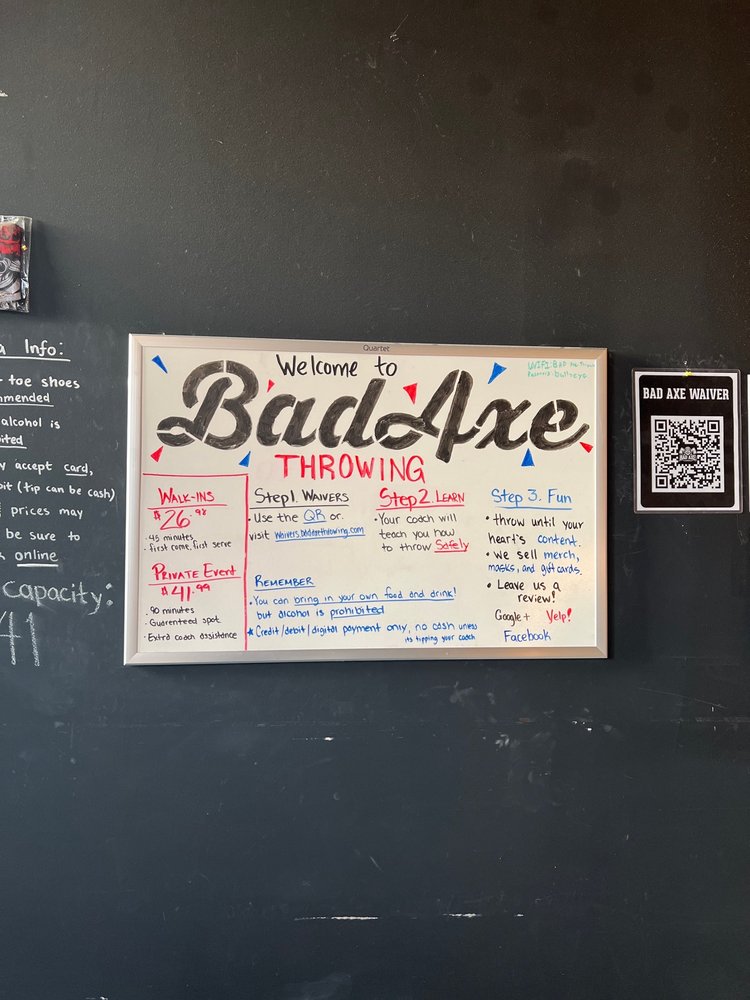 a Info:
toe shoes
mmended
alcohol is
ited
accept card,
it (tip can be cash)
prices may
be sure to
online
capacity:
41
Quartet
Welcome to
Bad Axe
THROWING
WIFI: BAD
bullseye
WALK-INS
$26.98
45 minutes
first come, first serve
PRIVATE EVENT
$41.99
90 minutes
Guarenteed spot
Extra coach assistance
Step 1. WAIVERS
• Use the QR or
visit waivers.badaxethrowing.com
Step 2. LEARN
• Your coach will
teach you how
to throw Safely
Step 3. Fun
• throw until your
heart's content.
• we sell merch,
masks, and gift cards.
• Leave us a
review!
Google + Yelp!
Facebook
REMEMBER
• You can bring in your own food and drink!
but alcohol is prohibited
* Credit/debit/digital payment only, no cash unless
its tipping your coach
BAD AXE WAIVER